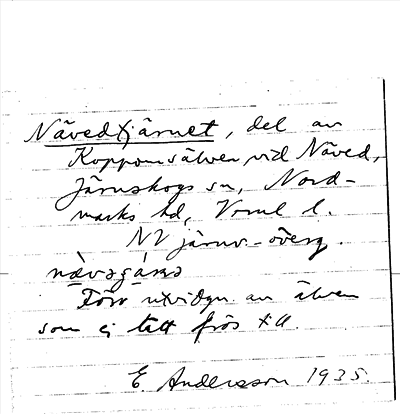 Nävedtjärnet, del av
Koppomsälven vid Näved,
Järnskogs sn, Nord-
marks hd, Vrml l.
NV järnv.-överg.
Förr utvidgn. av älven
som ej lätt frös till.
E. Andersson 1935.